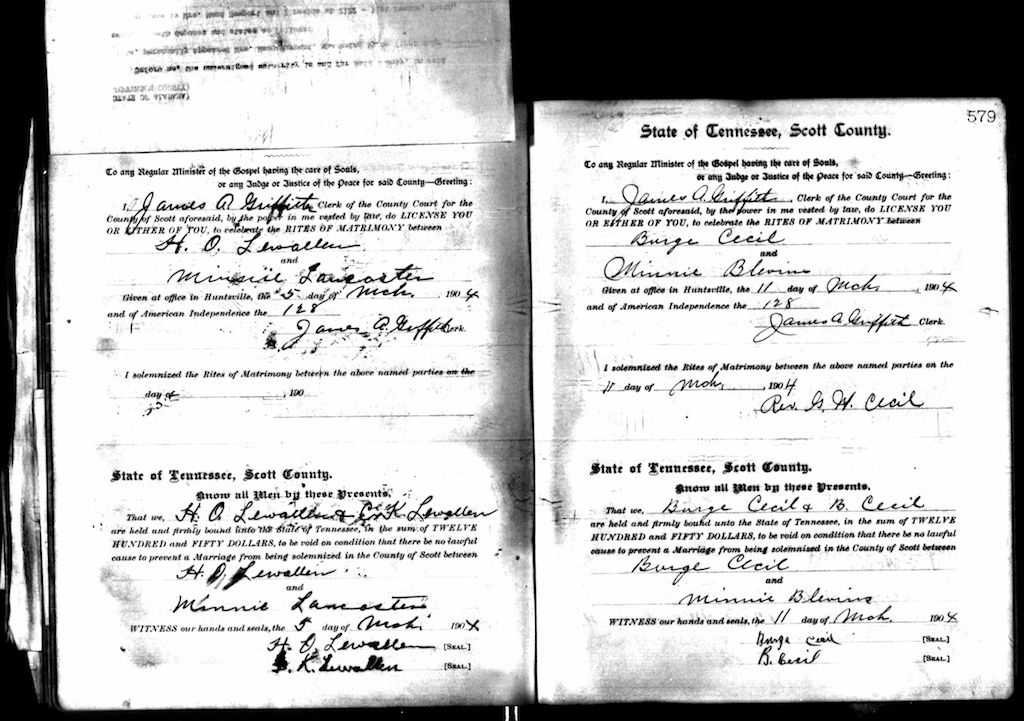 STATE OF ALABAMA)
JEFFERSON COUNTY)
State of Tennessee, Scott County.
To any Regular Minister of the Gospel having the care of Souls,
or any Judge or Justice of the Peace for said County—Greeting:
I, James A. Griffith, Clerk of the County Court for the
County of Scott aforesaid, by the power in me vested by law, do LICENSE YOU
OR EITHER OF YOU, to celebrate the RITES OF MATRIMONY between
H. O. Lewallen
and
Minnie Lancaster
Given at office in Huntsville, the 5 day of Mch. 1904
and of American Independence the 128
James A. Griffith Clerk.
I solemnized the Rites of Matrimony between the above named parties on the
day of , 190
State of Tennessee, Scott County.
Know all Men by these Presents,
That we, H. O. Lewallen & K Lewallen
are held and firmly bound unto the State of Tennessee, in the sum of TWELVE
HUNDRED and FIFTY DOLLARS, to be void on condition that there be no lawful
cause to prevent a Marriage from being solemnized in the County of Scott between
H. O. Lewallen
and
Minnie Lancaster
WITNESS our hands and seals, the 5 day of Mch. 1904
H. O. Lewallen [SEAL.]
K. Lewallen [SEAL.]
579
To any Regular Minister of the Gospel having the care of Souls,
or any Judge or Justice of the Peace for said County—Greeting:
I, James A. Griffith, Clerk of the County Court for the
County of Scott aforesaid, by the power in me vested by law, do LICENSE YOU
OR EITHER OF YOU, to celebrate the RITES OF MATRIMONY between
Burge Cecil
and
Minnie Blevins
Given at office in Huntsville, the 11 day of Mch, 1904
and of American Independence the 128
James A. Griffith Clerk.
I solemnized the Rites of Matrimony between the above named parties on the
11 day of Mch, 1904
Rev. G. H. Cecil
State of Tennessee, Scott County.
Know all Men by these Presents,
That we, Burge Cecil & B. Cecil
are held and firmly bound unto the State of Tennessee, in the sum of TWELVE
HUNDRED and FIFTY DOLLARS, to be void on condition that there be no lawful
cause to prevent a Marriage from being solemnized in the County of Scott between
Burge Cecil
and
Minnie Blevins
WITNESS our hands and seals, the 11 day of Mch. 1904
Burge Cecil [SEAL.]
B. Cecil [SEAL.]